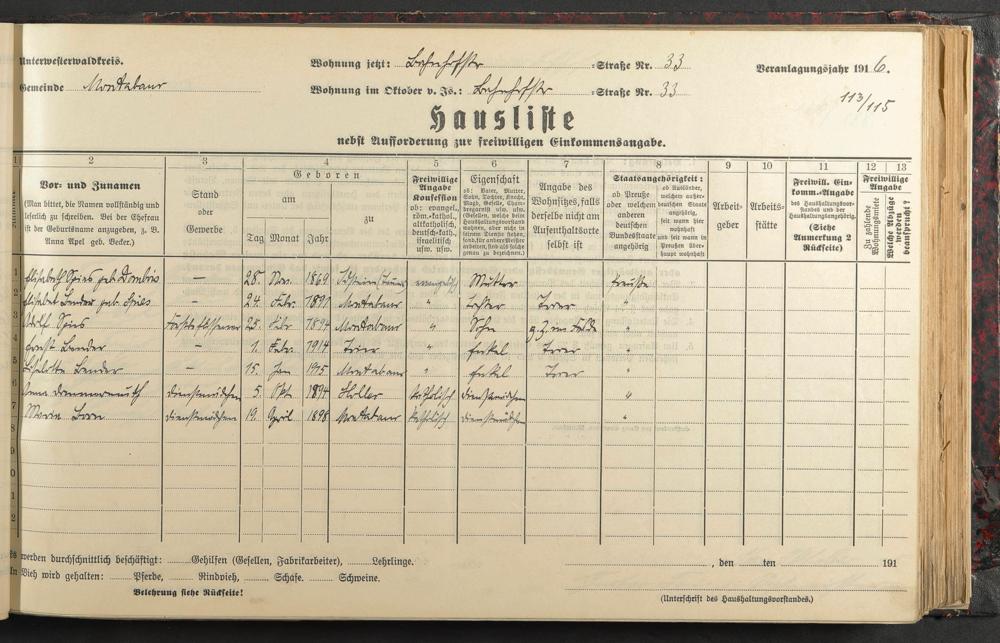 Unterwesterwaldkreis.
Wohnung jetzt: Bahnhofstr -Straße Nr. 33
Veranlagungsjahr 1916.
Gemeinde Montabaur
Wohnung im Oktober v. Js.: Bahnhofstr -Straße Nr. 33
113/115
Hausliste
nebst Aufforderung zur freiwilligen Einkommensangabe.
1 2 3 4 5 6 7 8 9 10 11 12 13
Vor- und Zunamen
(Man bittet, die Namen vollständig und
leserlich zu schreiben. Bei der Ehefrau
ist der Geburtsname anzugeben, z. B.
Anna Apel geb. Becker.)
Stand
oder
Gewerbe
Geboren
am
zu
Tag Monat Jahr
Freiwillige
Angabe
Konfession
ob: evangel.,
röm.-kathol.,
altkatholisch,
deutsch-kath.,
israelitisch
usw. usw.
Eigenschaft
ob: Vater, Mutter,
Sohn, Tochter, Knecht,
Magd, Geselle,
Angabe des
Wohnsitzes, falls
derselbe nicht am
Aufenthaltsorte
selbst ist
Staatsangehörigkeit:
ob Preuße
oder welchem
anderen
deutschen
Bundesstaate
angehörig
ob Ausländer,
welchem außer-
deutschen Staate
angehörig,
seit wann hier
wohnhaft
und seit wann in
Preußen über-
haupt wohnhaft
Arbeit-
geber
Arbeits-
stätte
Freiwill. Ein-
komm.-Angabe
des Haushaltungsvor-
standes und der
Haushaltungsangehörig.
(Siehe
Anmerkung 2
Rückseite)
Freiwillige
Angabe
Zu zahlende
Wohnungsmiete
Welche Abzüge
werden
beansprucht?
1 Elisabeth Spies geb. — 28. Nov. 1869 evangelisch Mutter Preuße
2 Elisabet Bender geb. Spies — 24. Febr. 1891 Montabaur " Tochter Trier "
3 Adolf Spies 25. Febr 1894 Montabaur " Sohn z. Z. im Felde "
4 Ernst Bender — 1. Febr. 1914 Trier " Enkel Trier "
5 Liselotte Bender — 15. Jan 1915 Montabaur " Enkel Trier "
6 Anna Dienstmädchen 5. Okt 1894 Holler katholisch Dienstmädchen "
7 Maria Dienstmädchen 19. April 1898 Montabaur katholisch Dienstmädchen "
8
9
0
1
2
Es werden durchschnittlich beschäftigt: Gehilfen (Gesellen, Fabrikarbeiter), Lehrlinge.
, den ten 191
An Vieh wird gehalten: Pferde, Rindvieh, Schafe. Schweine.
Belehrung siehe Rückseite!
(Unterschrift des Haushaltungsvorstandes.)